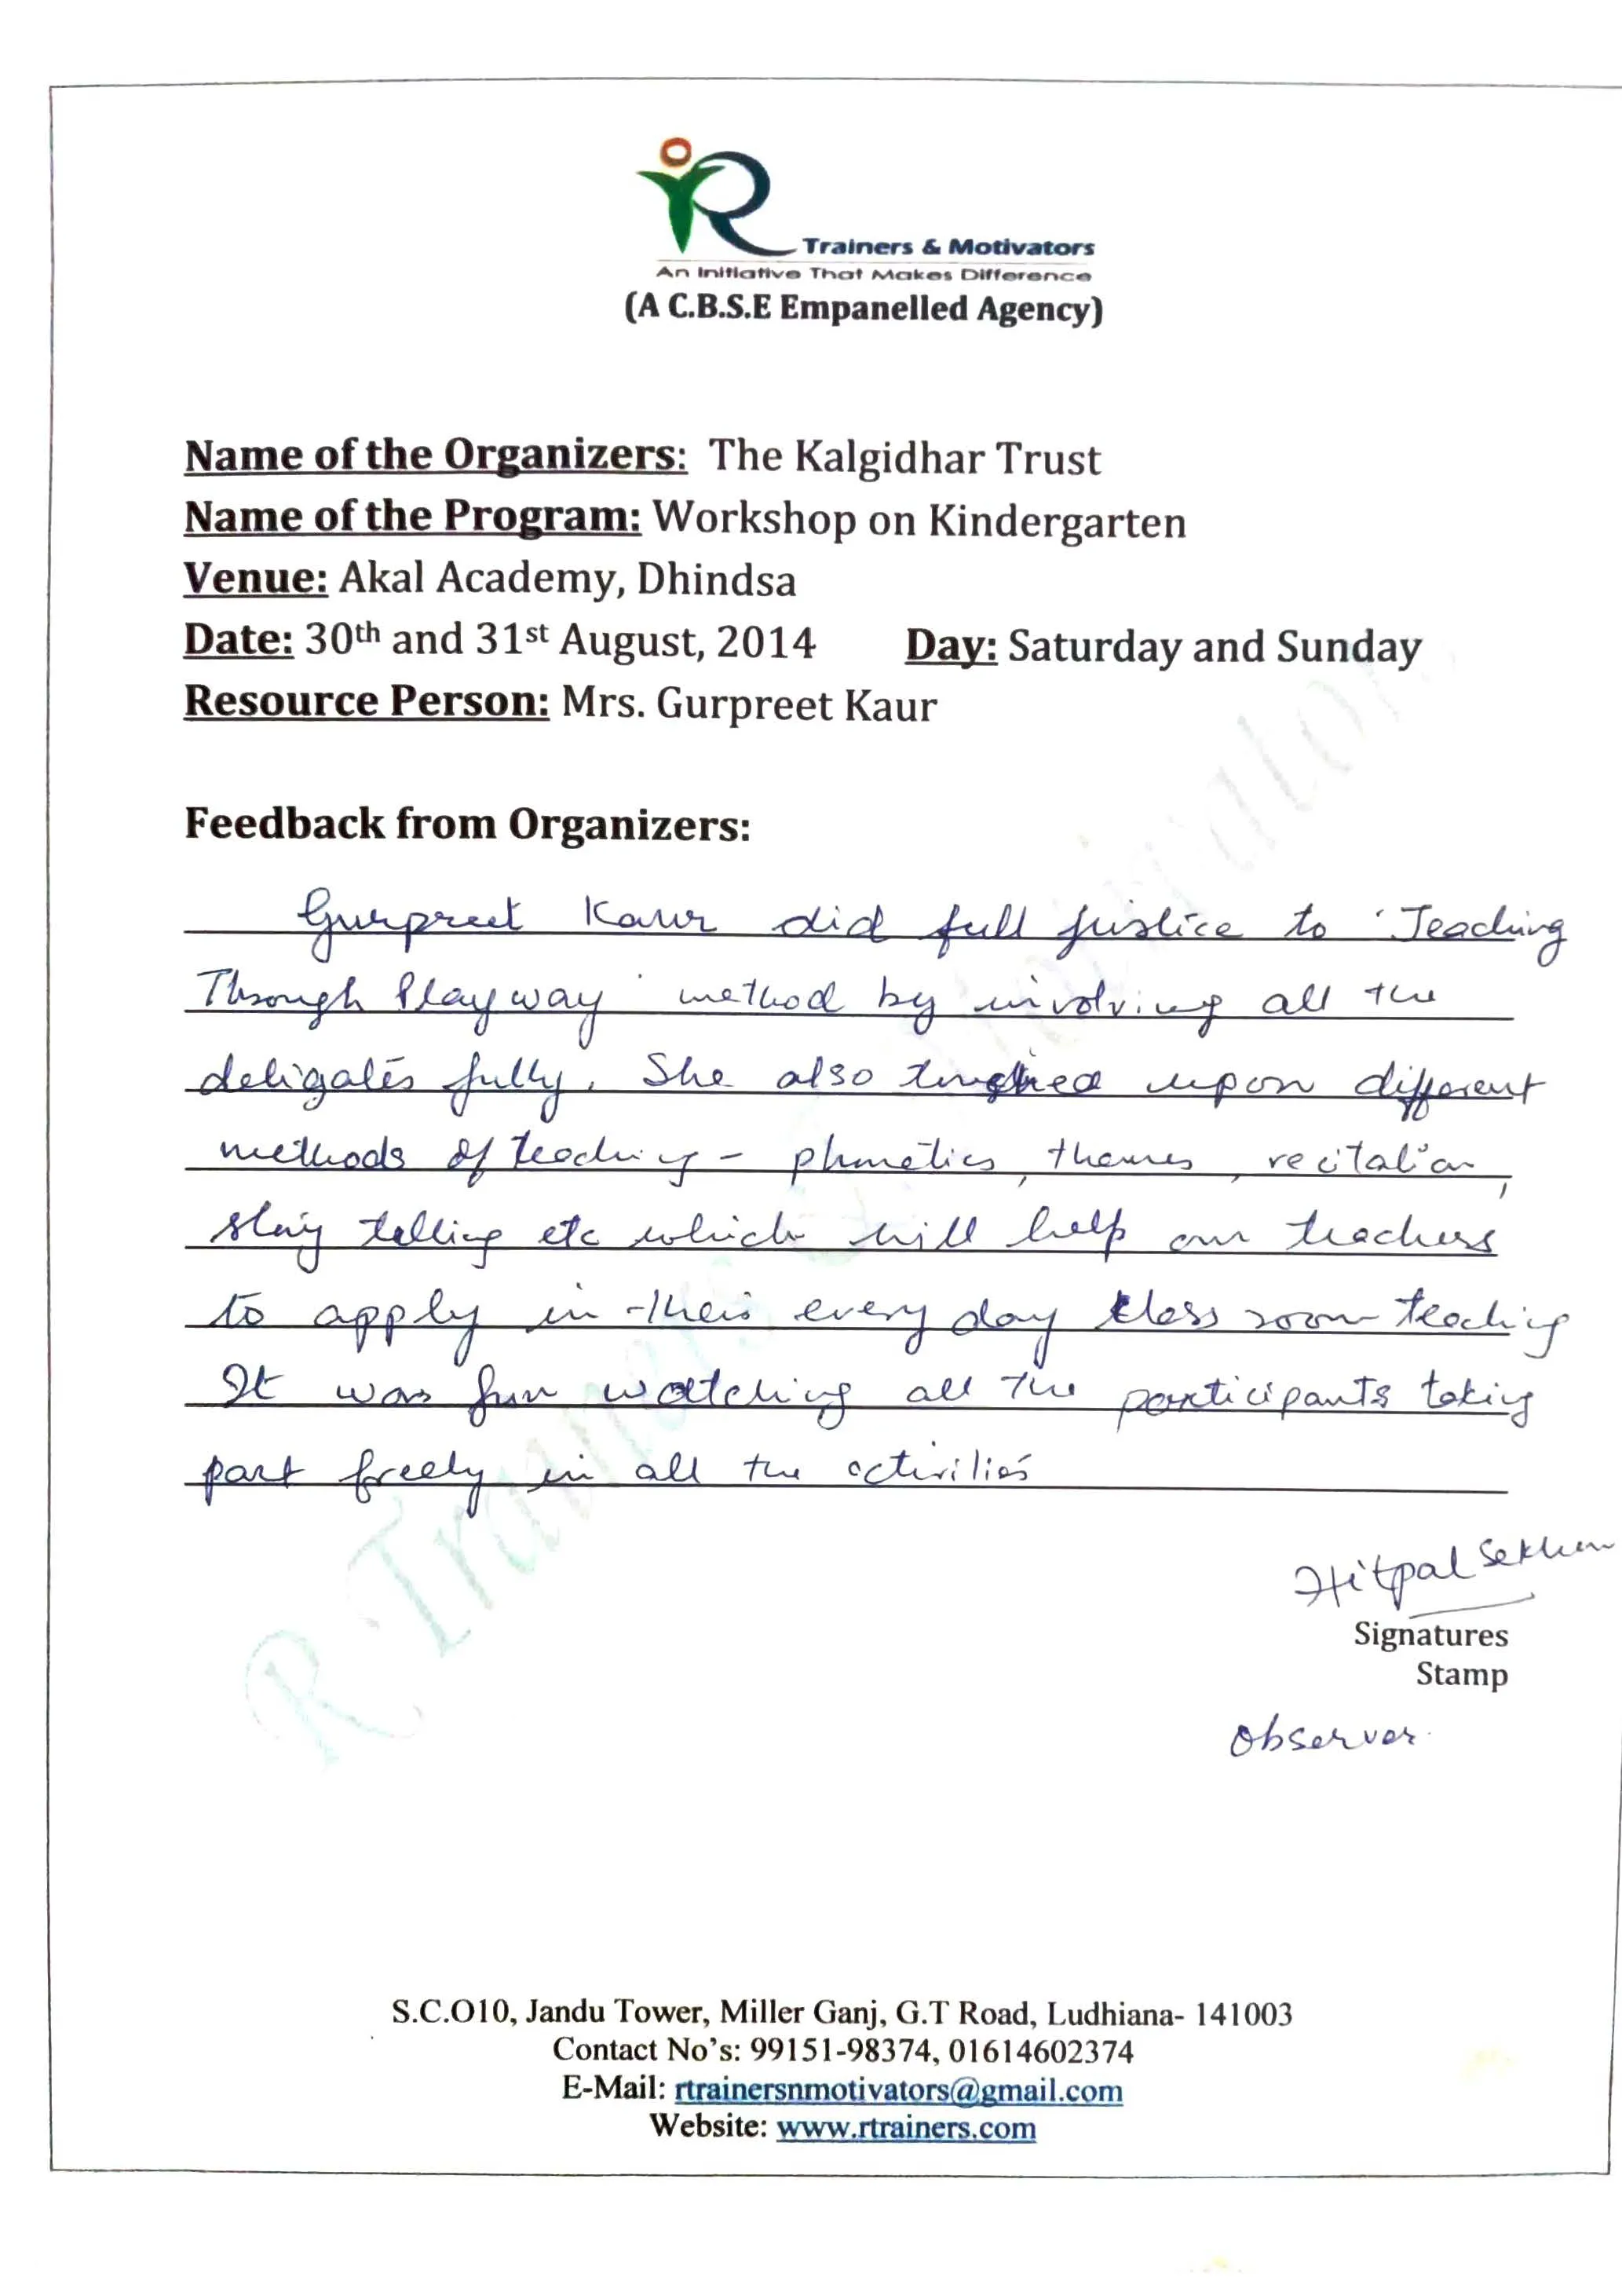 R Trainers & Motivators
An Initiative That Makes Difference
(A C.B.S.E Empanelled Agency)
Name of the Organizers: The Kalgidhar Trust
Name of the Program: Workshop on Kindergarten
Venue: Akal Academy, Dhindsa
Date: 30th and 31st August, 2014 Day: Saturday and Sunday
Resource Person: Mrs. Gurpreet Kaur
Feedback from Organizers:
Gurpreet Kaur did full justice to 'Teaching
Through Playway' method by involving all the
deligates fully. She also touched upon different
methods of teaching - phonetics, themes, recitation,
story telling etc which will help our teachers
to apply in their every day class room teaching
It was fun watching all the participants taking
part freely in all the activities
Hitpal Sekhon
Signatures
Stamp
Observer
R Trainers & Motivators
S.C.O10, Jandu Tower, Miller Ganj, G.T Road, Ludhiana- 141003
Contact No's: 99151-98374, 01614602374
E-Mail: rtrainersnmotivators@gmail.com
Website: www.rtrainers.com